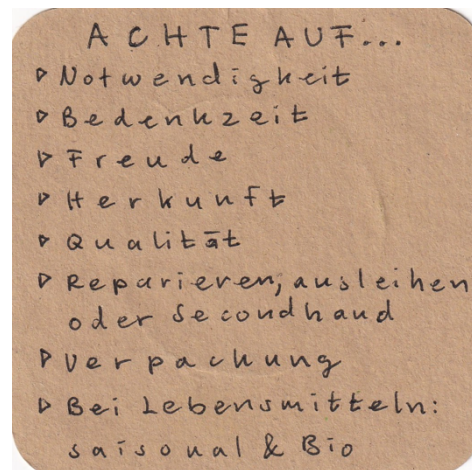 ACHTE AUF...
▹ Notwendigkeit
▹ Bedenkzeit
▹ Freude
▹ Herkunft
▹ Qualität
▹ Reparieren, ausleihen
oder Secondhand
▹ Verpackung
▹ Bei Lebensmitteln:
saisonal & Bio